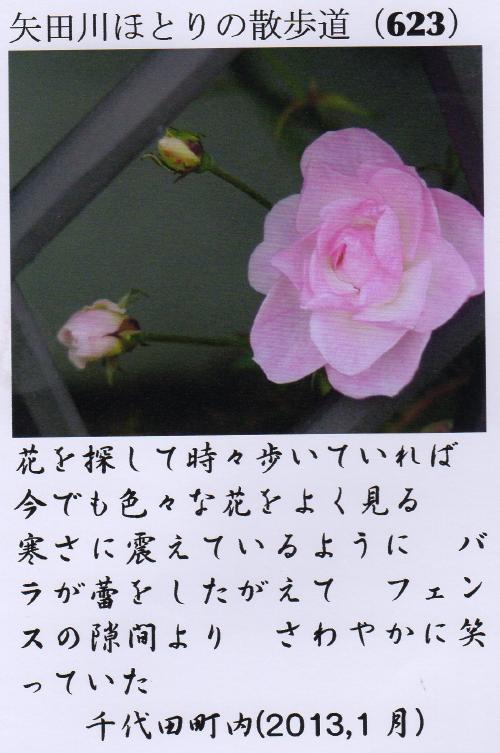 矢田川ほとりの散歩道（623）
花を探して時々歩いていれば
今でも色々な花をよく見る
寒さに震えているように　バ
ラが蕾をしたがえて　フェン
スの隙間より　さわやかに笑
っていた
千代田町内(2013,1月)